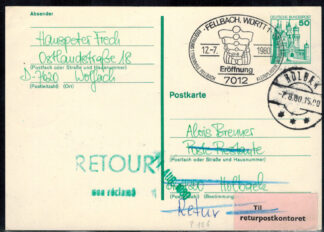 Absender
Hanspeter Frech
Ostlandstraße 18
(Postfach oder Straße und Hausnummer)
D-7620 Wolfach
(Postleitzahl) (Ort)
FELLBACH, WÜRTT 1
12.-7. 1983
Eröffnung
7012
DEUTSCHE BUNDESPOST
50
HOLBÆK
Postkarte
Alois Brenner
Poste Restante
(Postfach oder Straße und Hausnummer)
Holbaek
RETOUR
non réclamé
Retur
Til
returpostkontoret